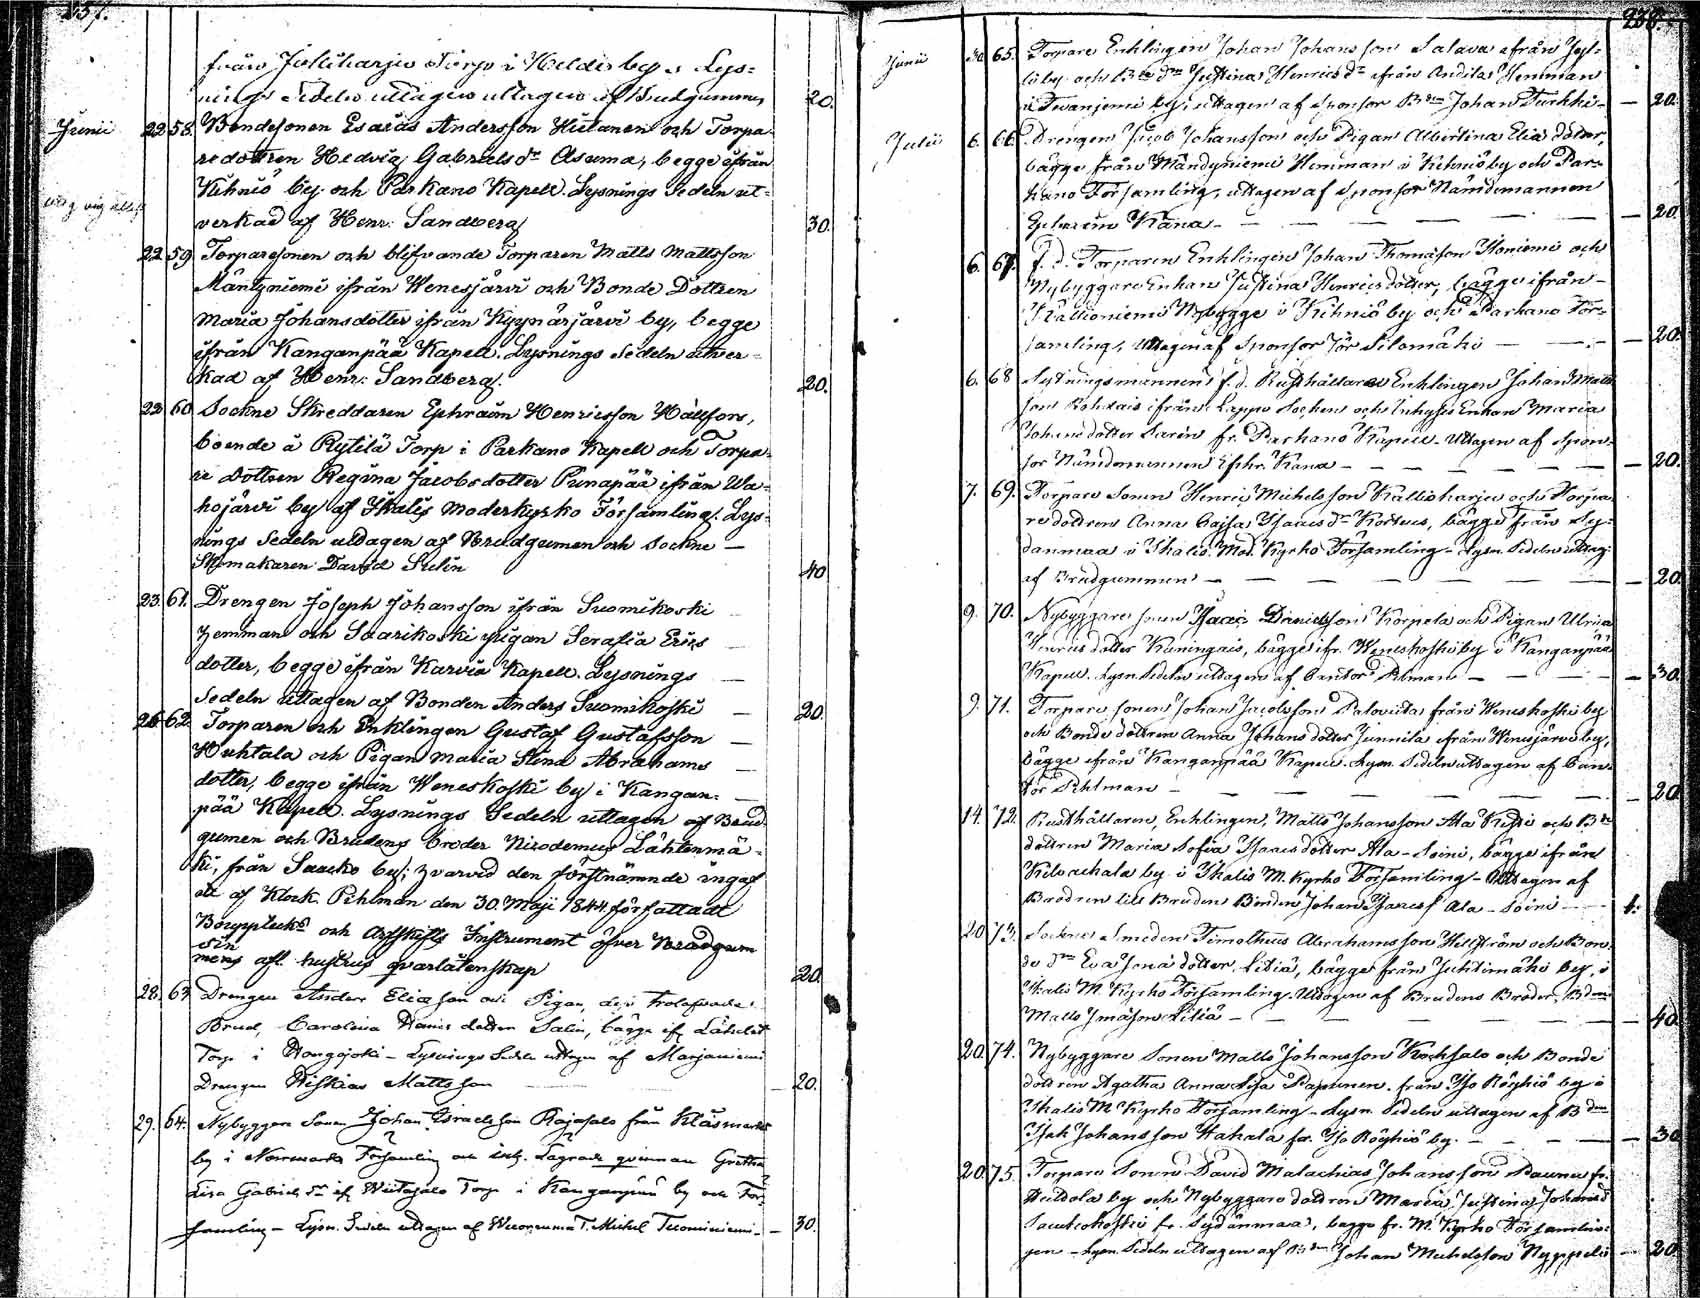 237.
från Jukuharju Torp i Heldis by. Lys=
nings Sedeln uttagen uttagen af Brudgummen 20.
Junii 22. 58. Bondesonen Esaias Andersson Hietanen och Torpa=
redottren Hedvig Gabrielsdr Assuma, begge ifrån
Kihniö by och Parkano Kapell. Lysnings Sedeln ut=
verkad af Henr: Sandberg 30.
22 59 Torparesonen och blifvande Torparen Matts Mattsson
Mäntyniemi ifrån Wenesjärvi och Bonde Dottren
Maria Johansdotter ifrån Kyynärjärvi by, begge
ifrån Kanganpää Kapell. Lysnings Sedeln utver=
kad af Henr: Sandberg. 20.
22 60 Sockne Skreddaren Ephraim Henricsson Hällfors,
boende å Rytilä Torp i Parkano Kapell och Torpa=
re dottren Regina Jacobsdotter Punapää ifrån Wa=
hojärvi by af Ikalis Moderkyrko Församling. Lys=
nings Sedeln utdagen af Brudgumen och Sockne
Skomakaren David Sulin 40
23. 61. Drengen Joseph Johansson ifrån Suomikoski
Hemman och Saarikoski pigan Serafia Erics
dotter, begge ifrån Karvia Kapell. Lysnings
Sedeln uttagen af Bonden Anders Suomikoski 20.
26 62. Torparen och Enklingen Gustaf Gustafsson
Huhtala och Pigan Maria Stina Abrahams
dotter, begge ifrån Weneskoski by i Kangan=
pää Kapell. Lysnings Sedeln uttagen af Brud=
gumen och Brudens broder Nicodemus Lähtenmä=
ki, från Saarko by; hvarvid den förstnämnde ingaf
ett af Klock. Pihlman den 30 Maji 1844 författadt
Bouppteckn och Arfskifts Instrument öfver Brudgum
mens sin afl. hustrus qvarlåtenskap 20.
28. 63 Drengen Anders Eliasson och Pigan, dess trolofvade
Brud, Carolina Henrics dotter Salin, bägge if.
Torp i Hongojoki – Lysnings Sedeln uttagen af Marjaniemi
Drengen Hiskias Mattsson 20.
29. 64. Nybyggare Sonen Johan Israelsson Rajasalo från Klåsmark
by i Norrmarks Församling och qvinnan Gretha
Lisa Gabrielsdr if. Wiitasalo Torp i Kanganpää by och För=
samling – Lysn. Sedeln uttagen af Michel Tuominiemi 30.
238.
Junii 30 65. Torpare Enklingen Johan Johansson Salava ifrån
by och Bde dr Justina Henricsdr ifrån Andila Hemman
i by; uttagen af Sponsor Bden Johan Turkki 20.
Julii 6. 66. Drengen Jacob Johansson och Pigan Albertina Elias dotter,
bägge från Mändyniemi Hemman i Kihniö by och Par=
kano Församling, uttagen af Sponsor Nämdemannen
Ephraim Kana 20.
6. 67. f.d. Torparen Enklingen Johan Thomasson Honiemi och
Nybyggare Enkan Justina Henricsdotter, bägge ifrån
Kallioniemi Nybygge i Kihniö by och Parkano För=
samling, Uttagen af Sponsor Jör Silomäki 20.
6. 68 Sytningsmannen f.d. Rusthållaren Enklingen Johan Matts
son ifrån Lappo Socken och Inhyses Enkan Maria
Johansdotter Sarin fr. Parkano Kapell. Uttagen af Spon=
sor Nämdemannen Ephr. Kana 20.
7. 69. Torpare Sonen Henric Michelsson Kallioharju och Torpa
re dottren Anna Cajsa Isaacsdr Kortus, bägge från Sy=
danmaa i Ikalis Mod. Kyrko Församling – Lysn. Sedeln uttag.
af Brudgummen 20.
9. 70. Nybyggare sonen Isaac Danielsson Korpela och Pigan Ulrica
Henricsdotter Kuningais, bägge ifr. Weneskoski by i Kanganpää
Kapell. Lysn. Sedeln utdagen af Cantor Pilman 30.
9. 71. Torpare sonen Johan Jacobsson Palovuta från Weneskoski by
och Bonde dottren Anna Johansdotter Junnila ifrån Wenesjärvi by,
bägge ifrån Kanganpää Kapell. Lysn. Sedeln uttagen af Can=
tor Pihlman 20
14. 72. Rusthållaren, Enklingen, Matts Johansson Ala Kesti och Bde
dottren Maria Sofia Isaacsdotter Ala-Soini, bägge ifrån
Kilvakala by i Ikalis M. Kyrko Församling – Uttagen af
Brodren till Bruden Bonden Johan Isacss Ala-Soini 1.
20 73. Sockne Smeden Timotheus Abrahamsson Hellström och Bon=
de dren Eva Jonæ dotter Litiä, bägge från Juhtimäki by, i
Ikalis M. Kyrko Församling. Uttagen af Brudens Broder, Bden
Matts Jonasson Litiä 40
20. 74. Nybyggare Sonen Matts Johansson Koohsalo och Bonde
dottren Agatha Anna Lisa Papunen, från Iso Röyhiö by i
Ikalis M. Kyrko Församling – Lysn. Sedeln uttagen af Bden
Isak Johansson Hahala fr. Iso Röyhiö by. 30
20. 75. Torpare Sonen David Malachias Johansson Pauna fr.
Heittola by och Nybyggare dottren Maria Justina Johansdr
Sautiokoski fr. Sydänmaa, bägge fr. M. Kyrko Församlin=
gen – Lysn. Sedeln uttagen af Bden Johan Michelsson Nyppelö 20